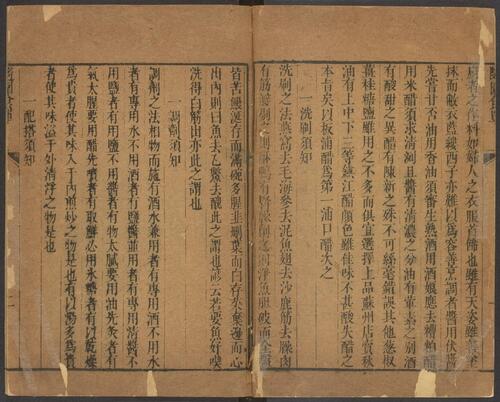 廚者之作料如婦人之衣服首飾也雖有天姿雖善塗
抹而敝衣藍縷西子亦難以為容善烹調者醬用伏醬
先嘗甘否油用香油須審生熟酒用酒娘應去糟粕醋
用米醋須求清冽且醬有清濃之分油有葷素之別酒
有酸甜之異醋有陳新之殊不可絲毫錯誤其他葱椒
薑桂糖鹽雖用之不多而俱宜選擇上品蘇州店賣秋
油有上中下三等鎮江醋顏色雖佳味不甚酸失醋之
本旨矣以板浦醋為第一浦口醋次之
一洗刷須知
洗刷之法燕窩去毛海參去泥魚翅去沙鹿筋去臊肉
有筋瓣剔之則酥鴨有腎臊削之則淨魚膽破而全盤
皆苦鰻涎存而滿碗多腥韭刪葉而白存菜棄邊而心
出內則曰魚去乙鱉去醜此之謂也諺云若要魚好喫
洗得白筋出亦此之謂也
一調劑須知
調劑之法相物而施有酒水兼用者有專用酒不用水
者有專用水不用酒者有鹽醬並用者有專用清醬不
用鹽者有用鹽不用醬者有物太膩要用油先炙者有
氣太腥要用醋先噴者有取鮮必用冰糖者有以乾燥
為貴者使其味入于內煎炒之物是也有以湯多為貴
者使其味溢于外清浮之物是也
一配搭須知